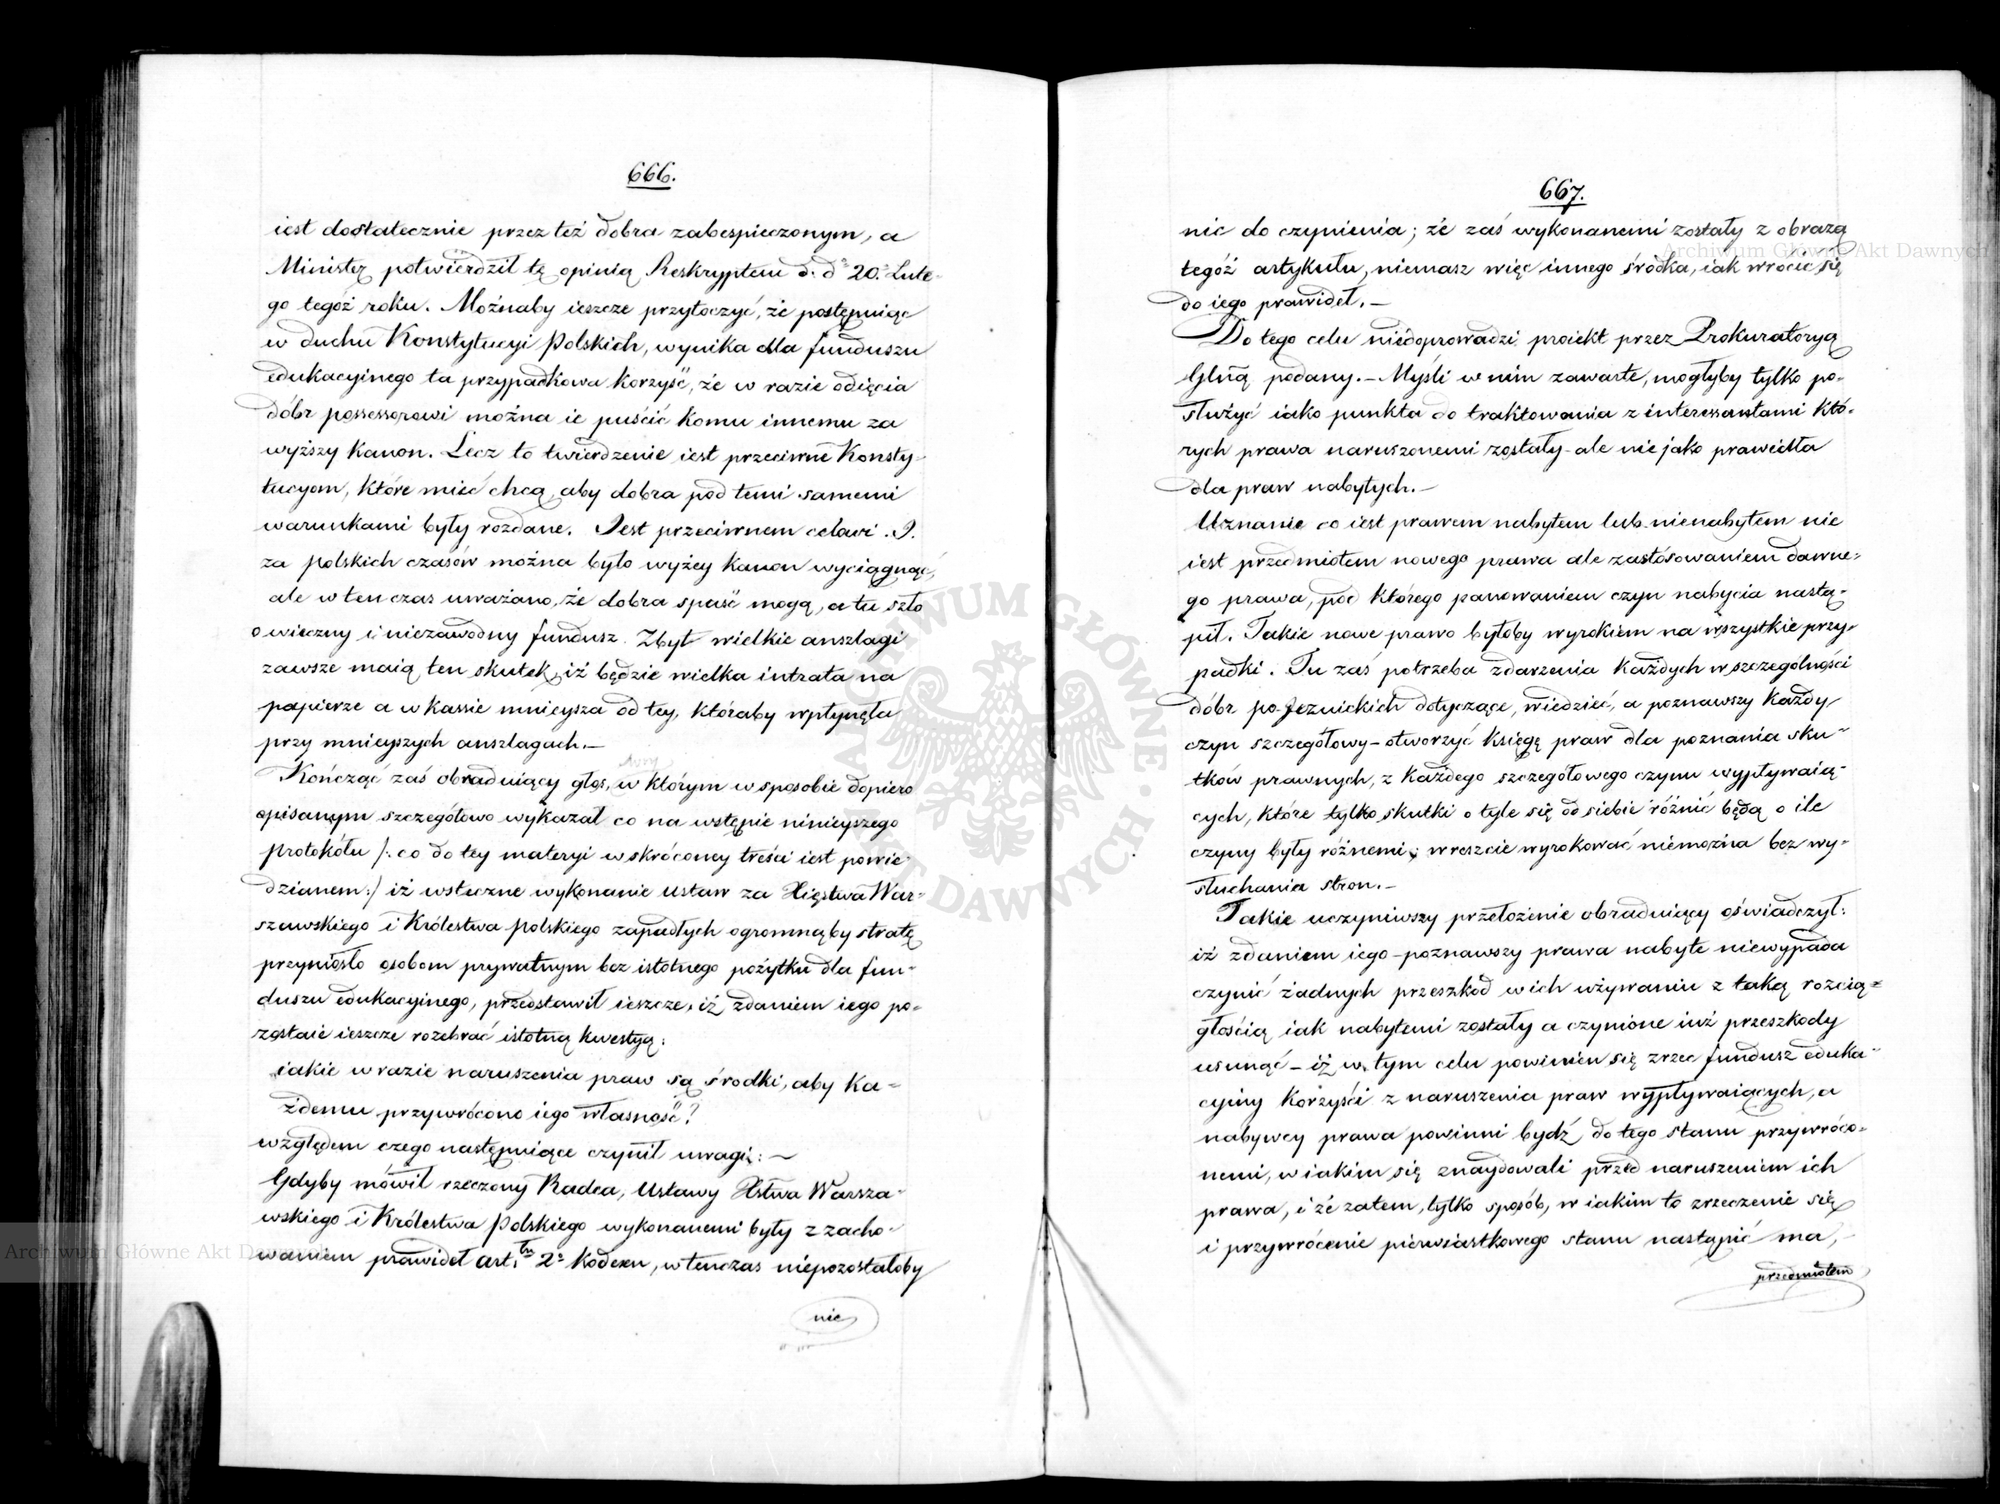 666.
iest dostatecznie przez też dobra zabespieczonym, a
Minister potwierdził tę opinią Reskryptem d. d. 20. Lute-
go tegóż roku. Możnaby ieszcze przytoczyć, że postępuiąc
w duchu Konstytucyi Polskich, wynika dla funduszu
edukacyinego ta przypadkowa korzyść, że w razie odięcia
dóbr possessorowi można ie puścić komu innemu za
wyższy Kanon. Lecz to twierdzenie iest przeciwne Konsty-
tucyom, które mieć chcą, aby dobra pod temi samemi
warunkami były rozdane. Jest przeciwnem celowi. J.
za polskich czasów można było wyżey Kanon wyciągnąć,
ale w ten czas uważano, że dobra spaść mogą, a tu szło
o wieczny i niezawodny fundusz. Zbyt wielkie anszlagi
zawsze maią ten skutek, iż będzie wielka intrata na
papierze a w kassie mnieysza od tey, któraby wpłynęła
przy mnieyszych anszlagach.—
Kończąć zaś obraduiący głos, w którym w sposobie dopiero
opisanym szczegółowo wykazał co na wstępie ninieyszego
protokółu /: co do tey materyi w skróconey treści iest powie-
dzianem :/ iż wsteczne wykonanie ustaw za Xięstwa War-
szawskiego i Królestwa Polskiego zapadłych ogromnąby stratę
przyniosło osobom prywatnym bez istotnego pożytku dla fun-
duszu edukacyinego, przedstawił ieszcze, iż zdaniem iego po-
zostaie ieszcze rozebrać istotną kwestyą:
iakie w razie naruszenia praw są środki, aby ka-
żdemu przywrócono iego własność?
względem czego następuiące czynił uwagi: —
Gdyby mówił rzeczony Radca, Ustawy Xstwa Warsza-
wskiego i Królestwa Polskiego wykonanemi były z zacho-
waniem prawideł art.tu 2o Kodexu, wtenczas niepozostałoby
nic
667.
nic do czynienia; że zaś wykonanemi zostały z obrazą
tegóż artykułu, niemasz więc innego środka, iak wrócić się
do iego prawideł.—
Do tego celu niedoprowadzi proiekt przez Prokuratoryą
Glną podany.— Myśli w nim zawarte, mogłyby tylko po-
służyć iako punkta do traktowania z interessantami któ-
rych prawa naruszonemi zostały - ale nie jako prawidła
dla praw nabytych.—
Uznanie co iest prawem nabytem lub nienabytem nie
iest przedmiotem nowego prawa ale zastósowaniem dawne-
go prawa, pod którego panowaniem czyn nabycia nastą-
pił. Takie nowe prawo byłoby wyrokiem na wszystkie przy-
padki. Tu zaś potrzeba zdarzenia każdych w szczególności
dóbr po-Jezuickich dotyczące, wiedzieć, a poznawszy każdy
czyn szczegółowy - otworzyć księgę praw dla poznania sku-
tków prawnych, z każdego szczegółowego czynu wypływaią-
cych, które tylko skutki o tyle się od siebie różnić będą o ile
czyny były różnemi; wreszcie wyrokować niemożna bez wy-
słuchania stron.—
Takie uczyniwszy przełożenie obraduiący oświadczył:
iż zdaniem iego - poznawszy prawa nabyte niewypada
czynić żadnych przeszkód w ich używaniu z taką rozcią-
głością iak nabytemi zostały a czynione iuż przeszkody
usunąć - iż w tym celu powinien się zrzec fundusz eduka-
cyiny korzyści z naruszenia praw wypływaiących, a
nabywcy prawa powinni bydź do tego stanu przywróco-
nemi, w iakim się znaydowali przed naruszeniem ich
prawa, i że zatem, tylko sposób, w iakim to zrzeczenie się
i przywrócenie pierwiastkowego stanu nastąpić ma,
przedmiotem
ARCHIWUM GŁÓWNE AKT DAWNYCH
Archiwum Główne Akt Dawnych
Archiwum Główne Akt Dawnych